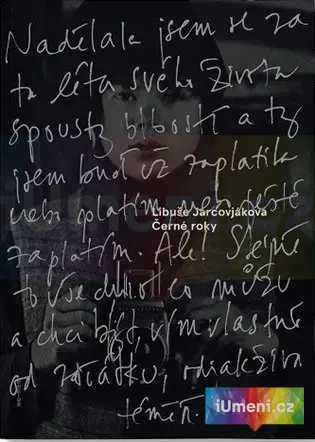 Nadělala jsem se za
ta léta svého života
spousty blbostí a ty
jsem buď už zaplatila
nebo platím nebo ještě
zaplatím. Ale! Stejně
to všechno co můžu
a chci být, vím vlastně
od začátku, odjakživa
téměř.
Libuše Jarcovjáková
Černé roky
iUmeni.cz
iUmeni.cz